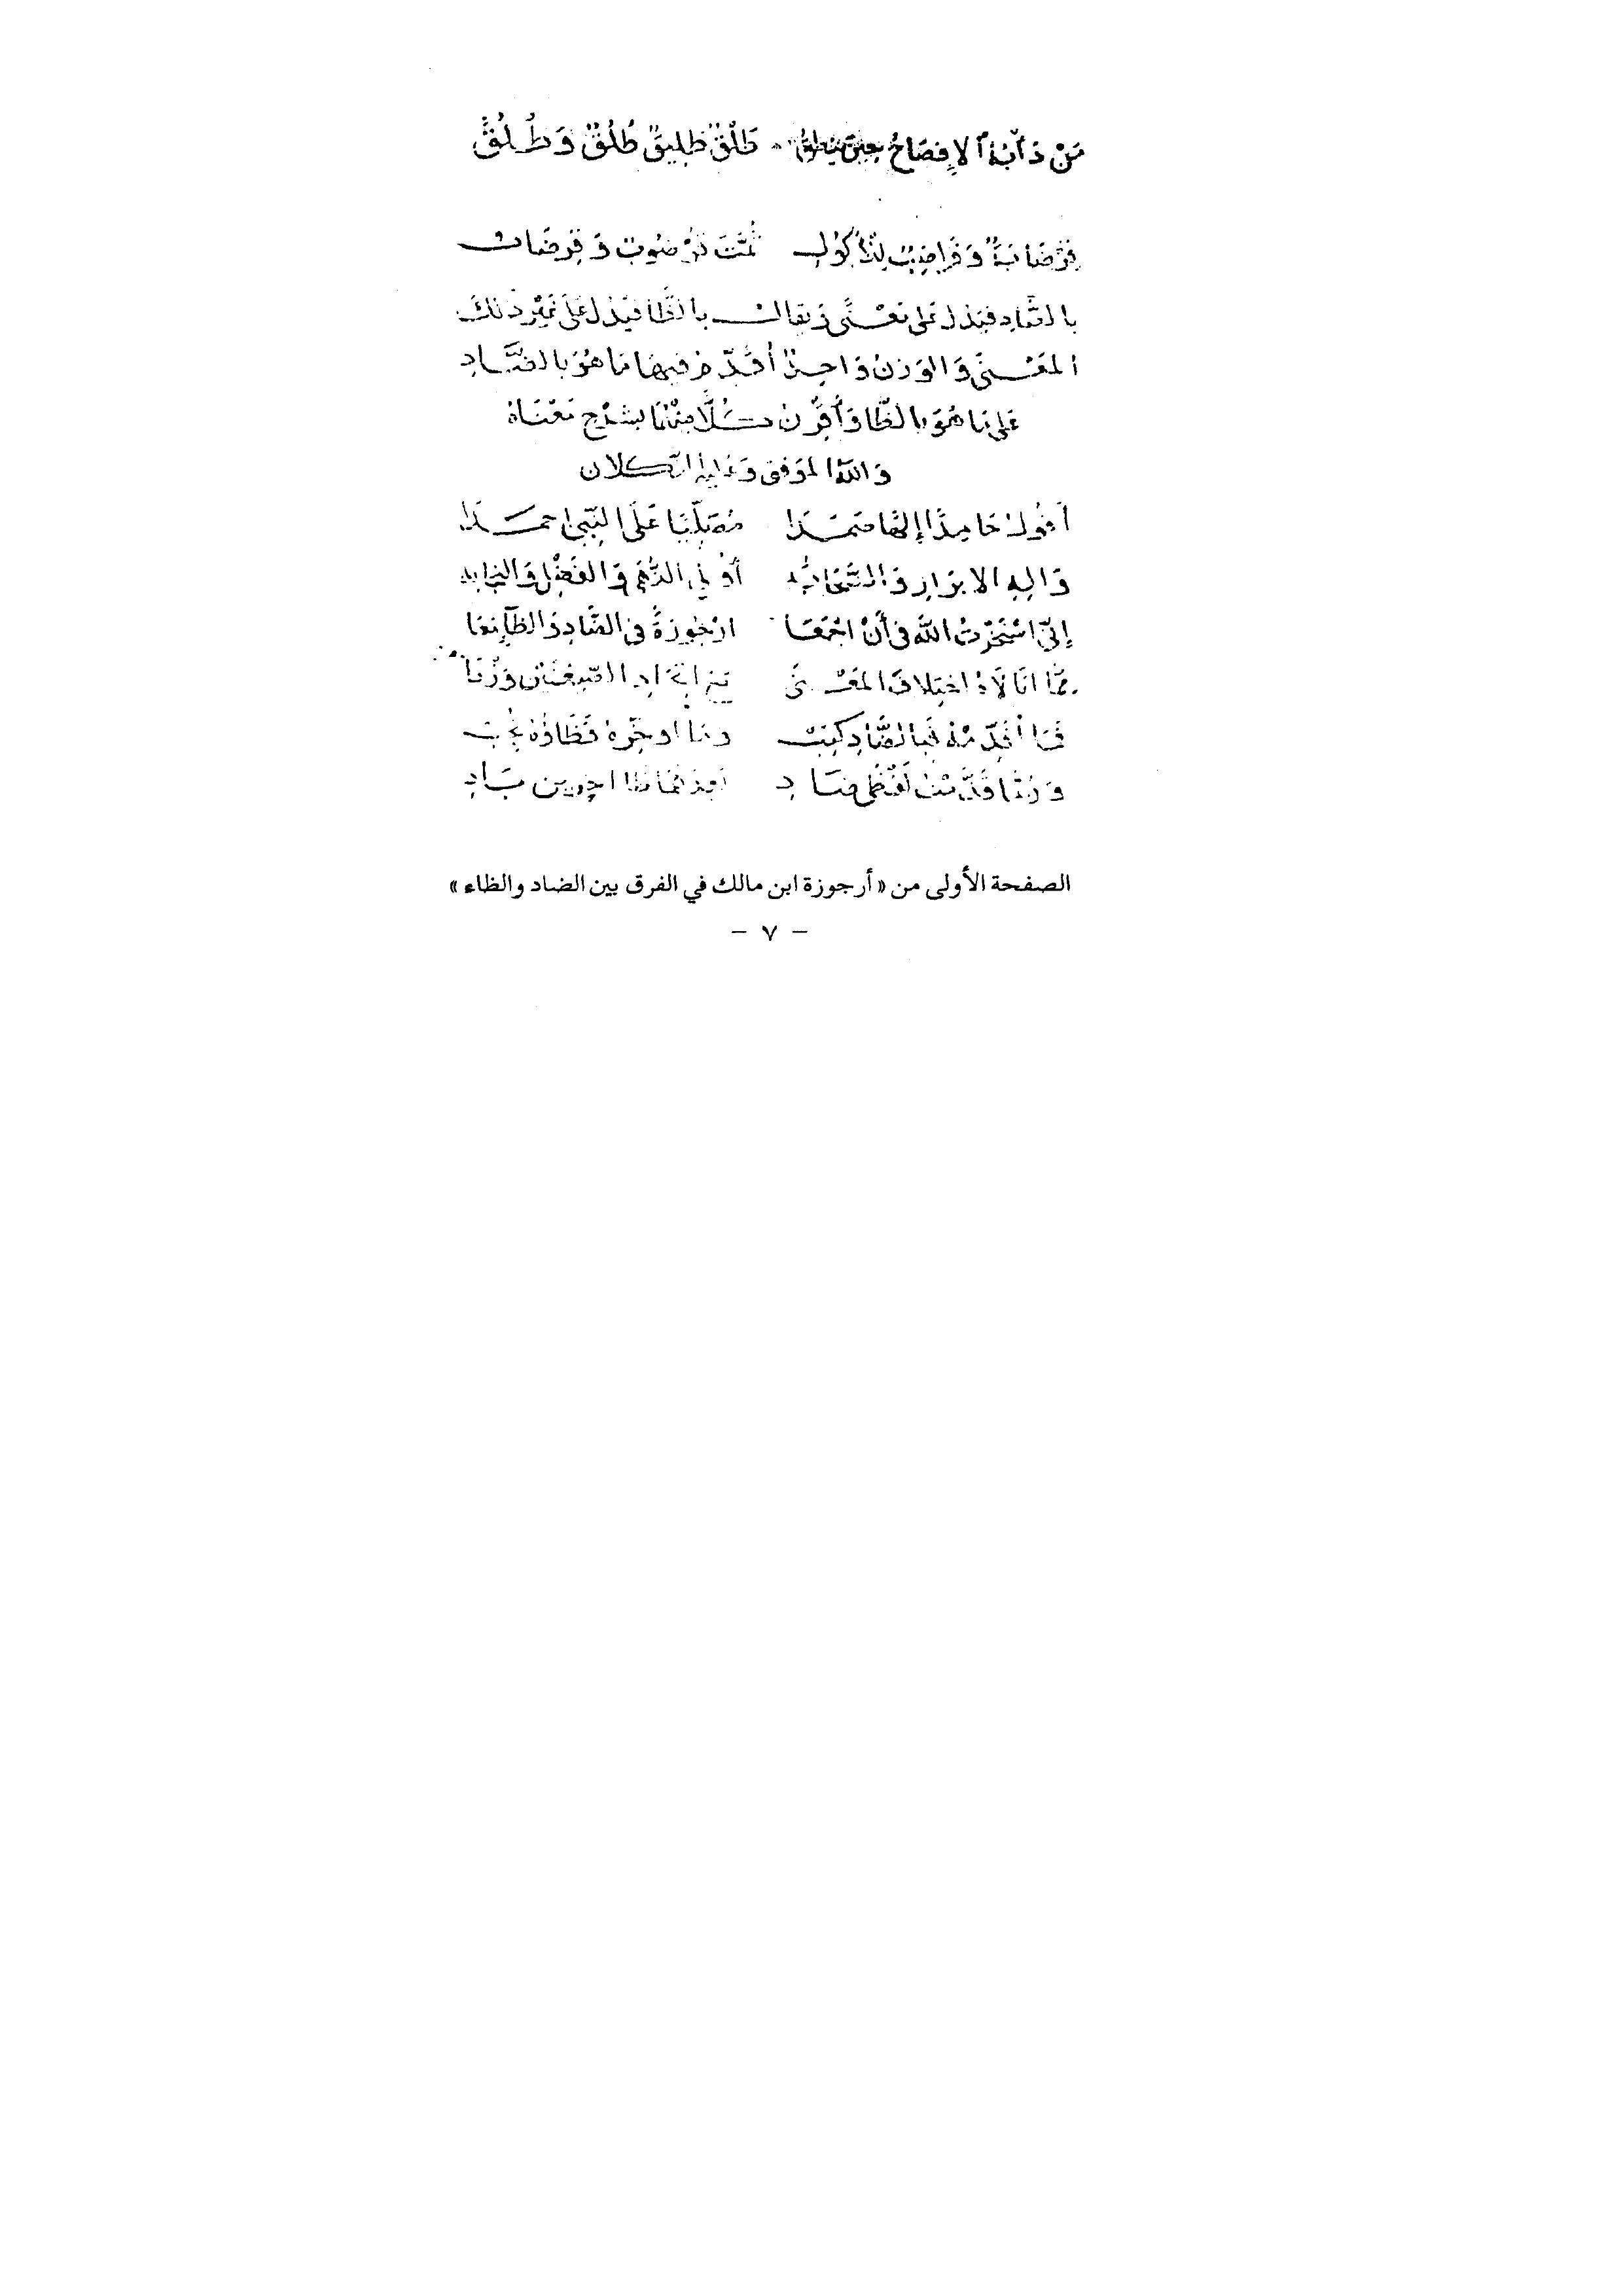 مَنْ دَأْبُهُ الإِفصَاحُ حِينَ يَنطِقُ طَلْقٌ طَلِيقٌ طُلُقٌ وَطُلَقُ
قِرْضَابَةٌ وَقَرَاضِبٌ لِلأَكُولِ ثُمَّتَ قُرْضُوبٌ وَقِرضَابٌ
بالضَّادِ فيَدُل عَلى مَعْنًى وَيقالُ بالظَّا فيَدُل عَلَى غَيْرِ ذَلكَ
المَعْنَى وَالوَزنُ وَاحِدٌ أُقَدِّمُ فيهَا مَا هُوَ بالضَّادِ
عَلى مَا هُوَ بالظَّا وَأُقرِنُ كُلًّا مِنْهُمَا بشَرْحِ مَعْنَاهُ
وَاللهُ الموَفِق وَعَليهِ التكلان
أَقُولُ حَامِدًا إِلهًا صَمَدَا مُصَلِّيًا عَلَى النَّبِيّ احمَدَا
وَالِهِ الابرَارِ وَالصَّحَابَه أُولي النُّهَى وَالفَضْلِ وَالنجَابه
إِنّي اسْتَخَرْتُ اللهَ في أَنْ اجْمَعَا ارْجُوزَةً في الضَّادِ وَالظَّا مَعَا
ممَّا اخْتِلافَ المَعْنَى اتحَادِ الصِّيغَتَيْن وَزْنَا
فَمَا أُقَدِّمْهُ فَبالضَّادِ كُتِبْ وَمَا اوخِّرهُ فَظَاؤُهُ تجِبْ
وَرُبَّمَا قَدَّمْتُ لَفْظَيْ ضَادِ بَعدَهُمَا
الصفحة الأولى من « أرجوزة ابن مالك في الفرق بين الضاد والظاء »
– ٧ –